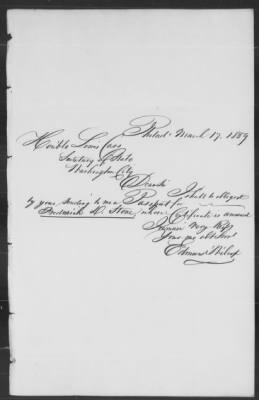 Philad. March 17, 1859
Honble Lewis Cass
Secretary of State
Washington City
D Sir
I shall be obliged
by your sending to me a Passport for
Frederick D. Stone, whose Certificate is annexed
I remain Very Resp
Your
Edmund